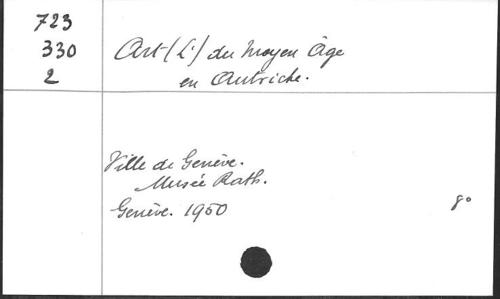 723
330
2
Art (L') du Moyen Âge
en Autriche.
Ville de Genève.
Musée Rath.
Genève. 1950
8°